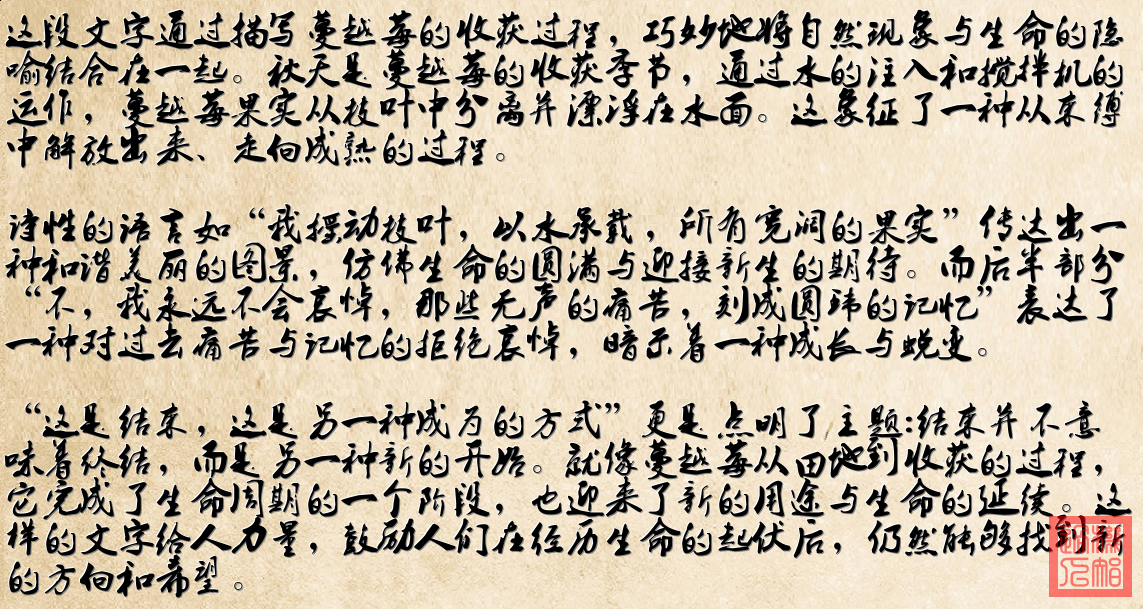 这段文字通过描写蔓越莓的收获过程，巧妙地将自然现象与生命的隐
喻结合在一起。秋天是蔓越莓的收获季节，通过水的注入和搅拌机的
运作，蔓越莓果实从枝叶中分离并漂浮在水面。这象征了一种从束缚
中解放出来、走向成熟的过程。
诗性的语言如“我摆动枝叶，以水承载，所有宽阔的果实”传达出一
种和谐美丽的图景，仿佛生命的圆满与迎接新生的期待。而后半部分
“不，我永远不会哀悼，那些无声的痛苦，刻成圆玮的记忆”表达了
一种对过去痛苦与记忆的拒绝哀悼，暗示着一种成长与蜕变。
“这是结束，这是另一种成为的方式”更是点明了主题:结束并不意
味着终结，而是另一种新的开始。就像蔓越莓从田地到收获的过程，
它完成了生命周期的一个阶段，也迎来了新的用途与生命的延续。这
样的文字给人力量，鼓励人们在经历生命的起伏后，仍然能够找到新
的方向和希望。